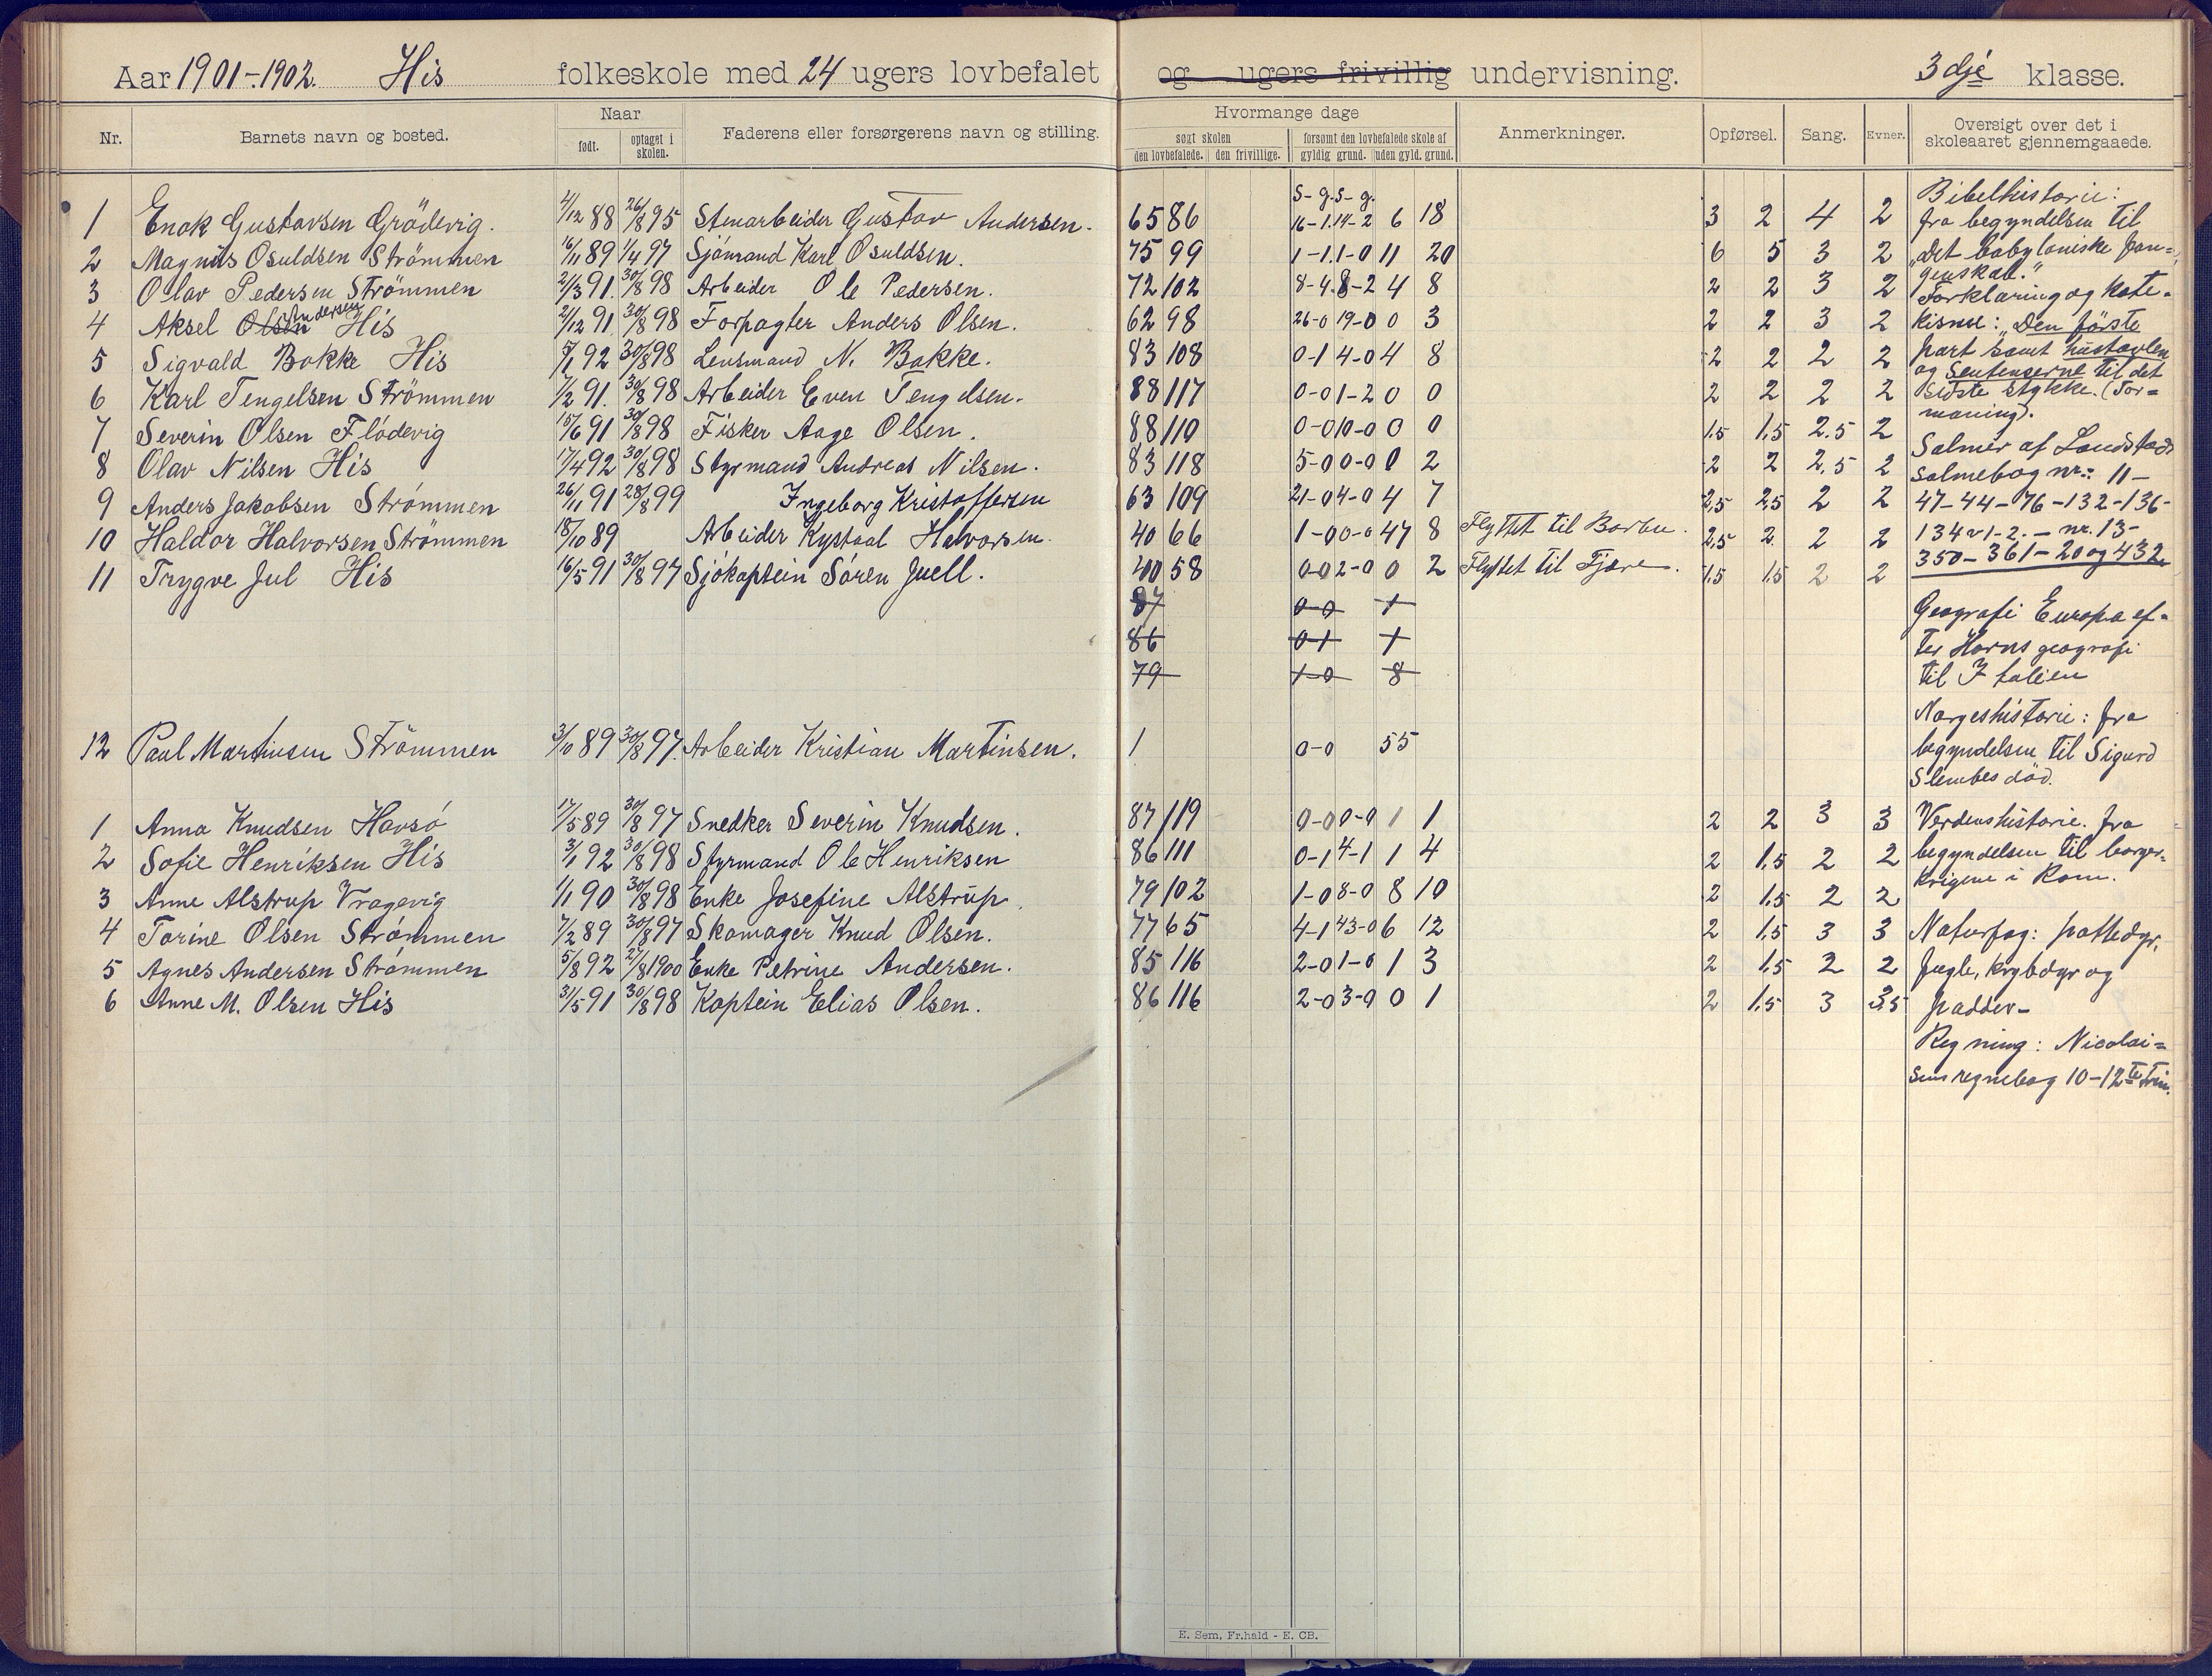 Aar 1901-1902. His folkeskole med 24 ugers lovbefalet og ugers frivillig undervisning. 3dje klasse.
Nr. Barnets navn og bosted. Naar født. optaget i skolen. Faderens eller forsørgerens navn og stilling. Hvormange dage søgt skolen den lovbefalede. den frivillige. forsømt den lovbefalede skole af gyldig grund. uden gyld. grund. Anmerkninger. Opførsel. Sang. Evner. Oversigt over det i skoleaaret gjennemgaaede.
S- g. S- g.
1 Enok Gustavsen Grödevig. 4/12 88 26/8 95 Stenarbeider Gustav Andersen. 65 86 16-1. 14-2 6 18 3 2 4 2
2 Magnus Osuldsen Strömmen 16/11 89 1/4 97 Sjömand Karl Osuldsen. 75 99 1-1. 1-0 11 20 6 5 3 2
3 Olav Pedersen Strömmen 21/3 91. 30/8 98 Arbeider Ole Pedersen. 72 102 8-4. 8-2 4 8 2 2 3 2
4 Aksel Olsen Andersen His 21/12 91. 30/8 98 Forpagter Anders Olsen. 62 98 26-0 19-0 0 3 2 2 3 2
5 Sigvald Bakke His 5/1 92 30/8 98 Lensmand N. Bakke. 83 108 0-1 4-0 4 8 2 2 2 2
6 Karl Tengelsen Strömmen 7/2 91. 30/8 98 Arbeider Even Tengelsen. 88 117 0-0 1-2 0 0 2 2 2 2
7 Severin Olsen Flödevig 15/6 91 30/8 98 Fisker Aage Olsen. 88 110 0-0 10-0 0 0 1.5 1.5 2.5 2
8 Olav Nilsen His 17/4 92 30/8 98 Styrmand Andreas Nilsen. 83 118 5-0 0-0 0 2 2 2 2.5 2
9 Anders Jakobsen Strömmen 26/11 91 28/8 99 Ingeborg Kristoffersen 63 109 21-0 4-0 4 7 2,5 2,5 2 2
10 Haldor Halvorsen Strömmen 18/10 89 Arbeider Kystaal Halvorsen. 40 66 1-0 0-0 47 8 Flyttet til Barbu. 2,5 2 2 2
11 Trygve Jul His 16/5 91 30/8 97 Sjökaptein Sören Juell. 40 58 0-0 2-0 0 2 Flyttet til Fjære. 1.5 1.5 2 2
87 0-0 1
86 0-1 1
79 1-0 8
12 Paul Martinsen Strömmen 3/10 89 30/8 97. Arbeider Kristian Martinsen. 1 0-0 55
1 Anna Knudsen Havsö 17/5 89 30/8 97 Snedker Severin Knudsen. 87 119 0-0 0-0 1 1 2 2 3 3
2 Sofie Henriksen His 3/1 92 30/8 98 Styrmand Ole Henriksen 86 111 0-1 4-1 1 4 2 1,5 2 2
3 Anne Alstrup Vragevig 1/1 90 30/8 98 Enke Josefine Alstrup. 79 102 1-0 8-0 8 10 2 1,5 2 2
4 Torine Olsen Strömmen 7/2 89 30/8 97 Skomager Knud Olsen. 77 65 4-1 43-0 6 12 2 1,5 3 3
5 Agnes Andersen Strömmen 5/8 92 27/8 1900 Enke Petrine Andersen. 85 116 2-0 1-0 1 3 2 1,5 2 2
6 Anne M. Olsen His 31/5 91 30/8 98 Kaptein Elias Olsen. 86 116 2-0 3-0 0 1 2 1.5 3 3,5
Bibelhistorie:
fra begyndelsen til
"Det babyloniske fan=
genskab."
Forklaring og kate=
kisme: "Den förste
part samt hustavlen
og Sentenserne til det
sidste stykke. (For=
maning).
Salmer af Landstads
salmebog nr: 11-
47-44-76-132-136-
134 v 1-2. - nr. 13-
350-361-20 og 432
Geografi Europa ef=
ter Horns geografi
til Italien
Norgeshistorie: fra
begyndelsen til Sigurd
Slembes död.
Verdenshistorie. fra
begyndelsen til borger=
krigene i Rom.
Naturfag: pattedyr,
fugle, krybdyr og
padder-
Regning: Nicolai=
sens regnebog 10-12te trin.
E. Sem, Fr.hald - E. CB.